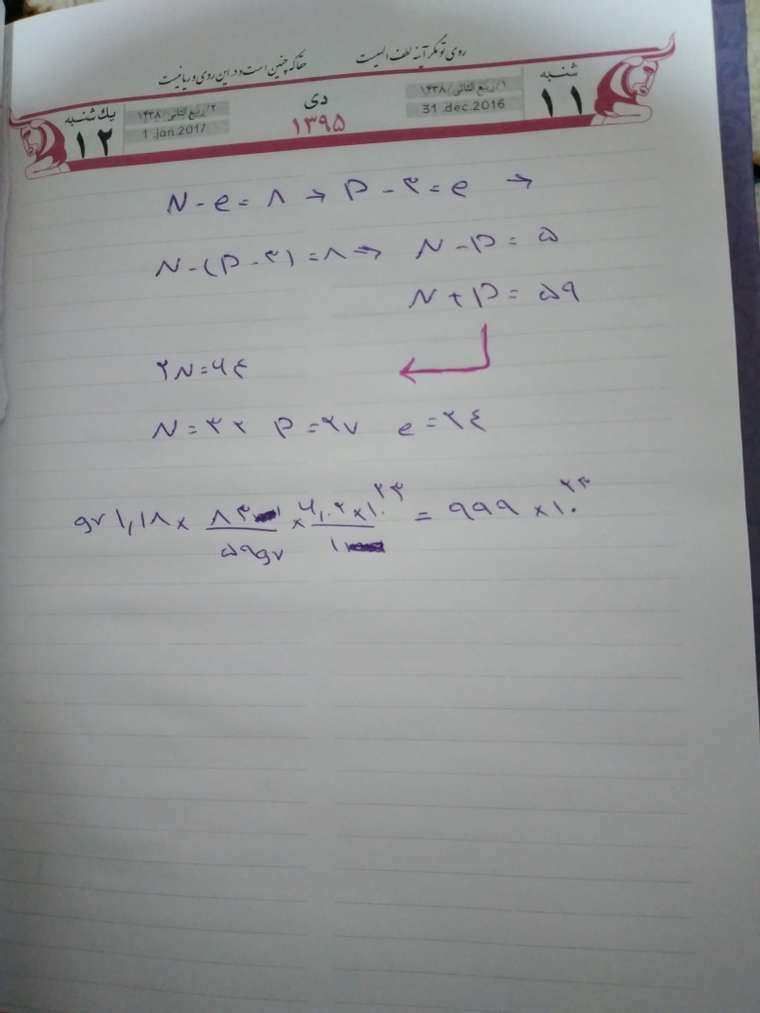 روی تو مگر آینه لطف الهیست حقا که چنین است و در این روی و ریا نیست
شنبه
۱۱
۱/ربیع الثانی/۱۴۳۸
31.dec.2016
دی
۱۳۹۵
۲/ربیع الثانی/۱۴۳۸
1.jan.2017
یک شنبه
۱۲
N - e = ۸ → P - ۳ = e →
N - (P - ۳) = ۸ → N - P = ۵
N + P = ۵۹
۲N = ۶۴
N = ۳۲ P = ۲۷ e = ۲۴
gr ۱,۱۸ × ۸۳ / ۵۹gr × ۶,۰۲ × ۱۰^۲۳ / ۱ = ۹۹۹ × ۱۰^۲۳